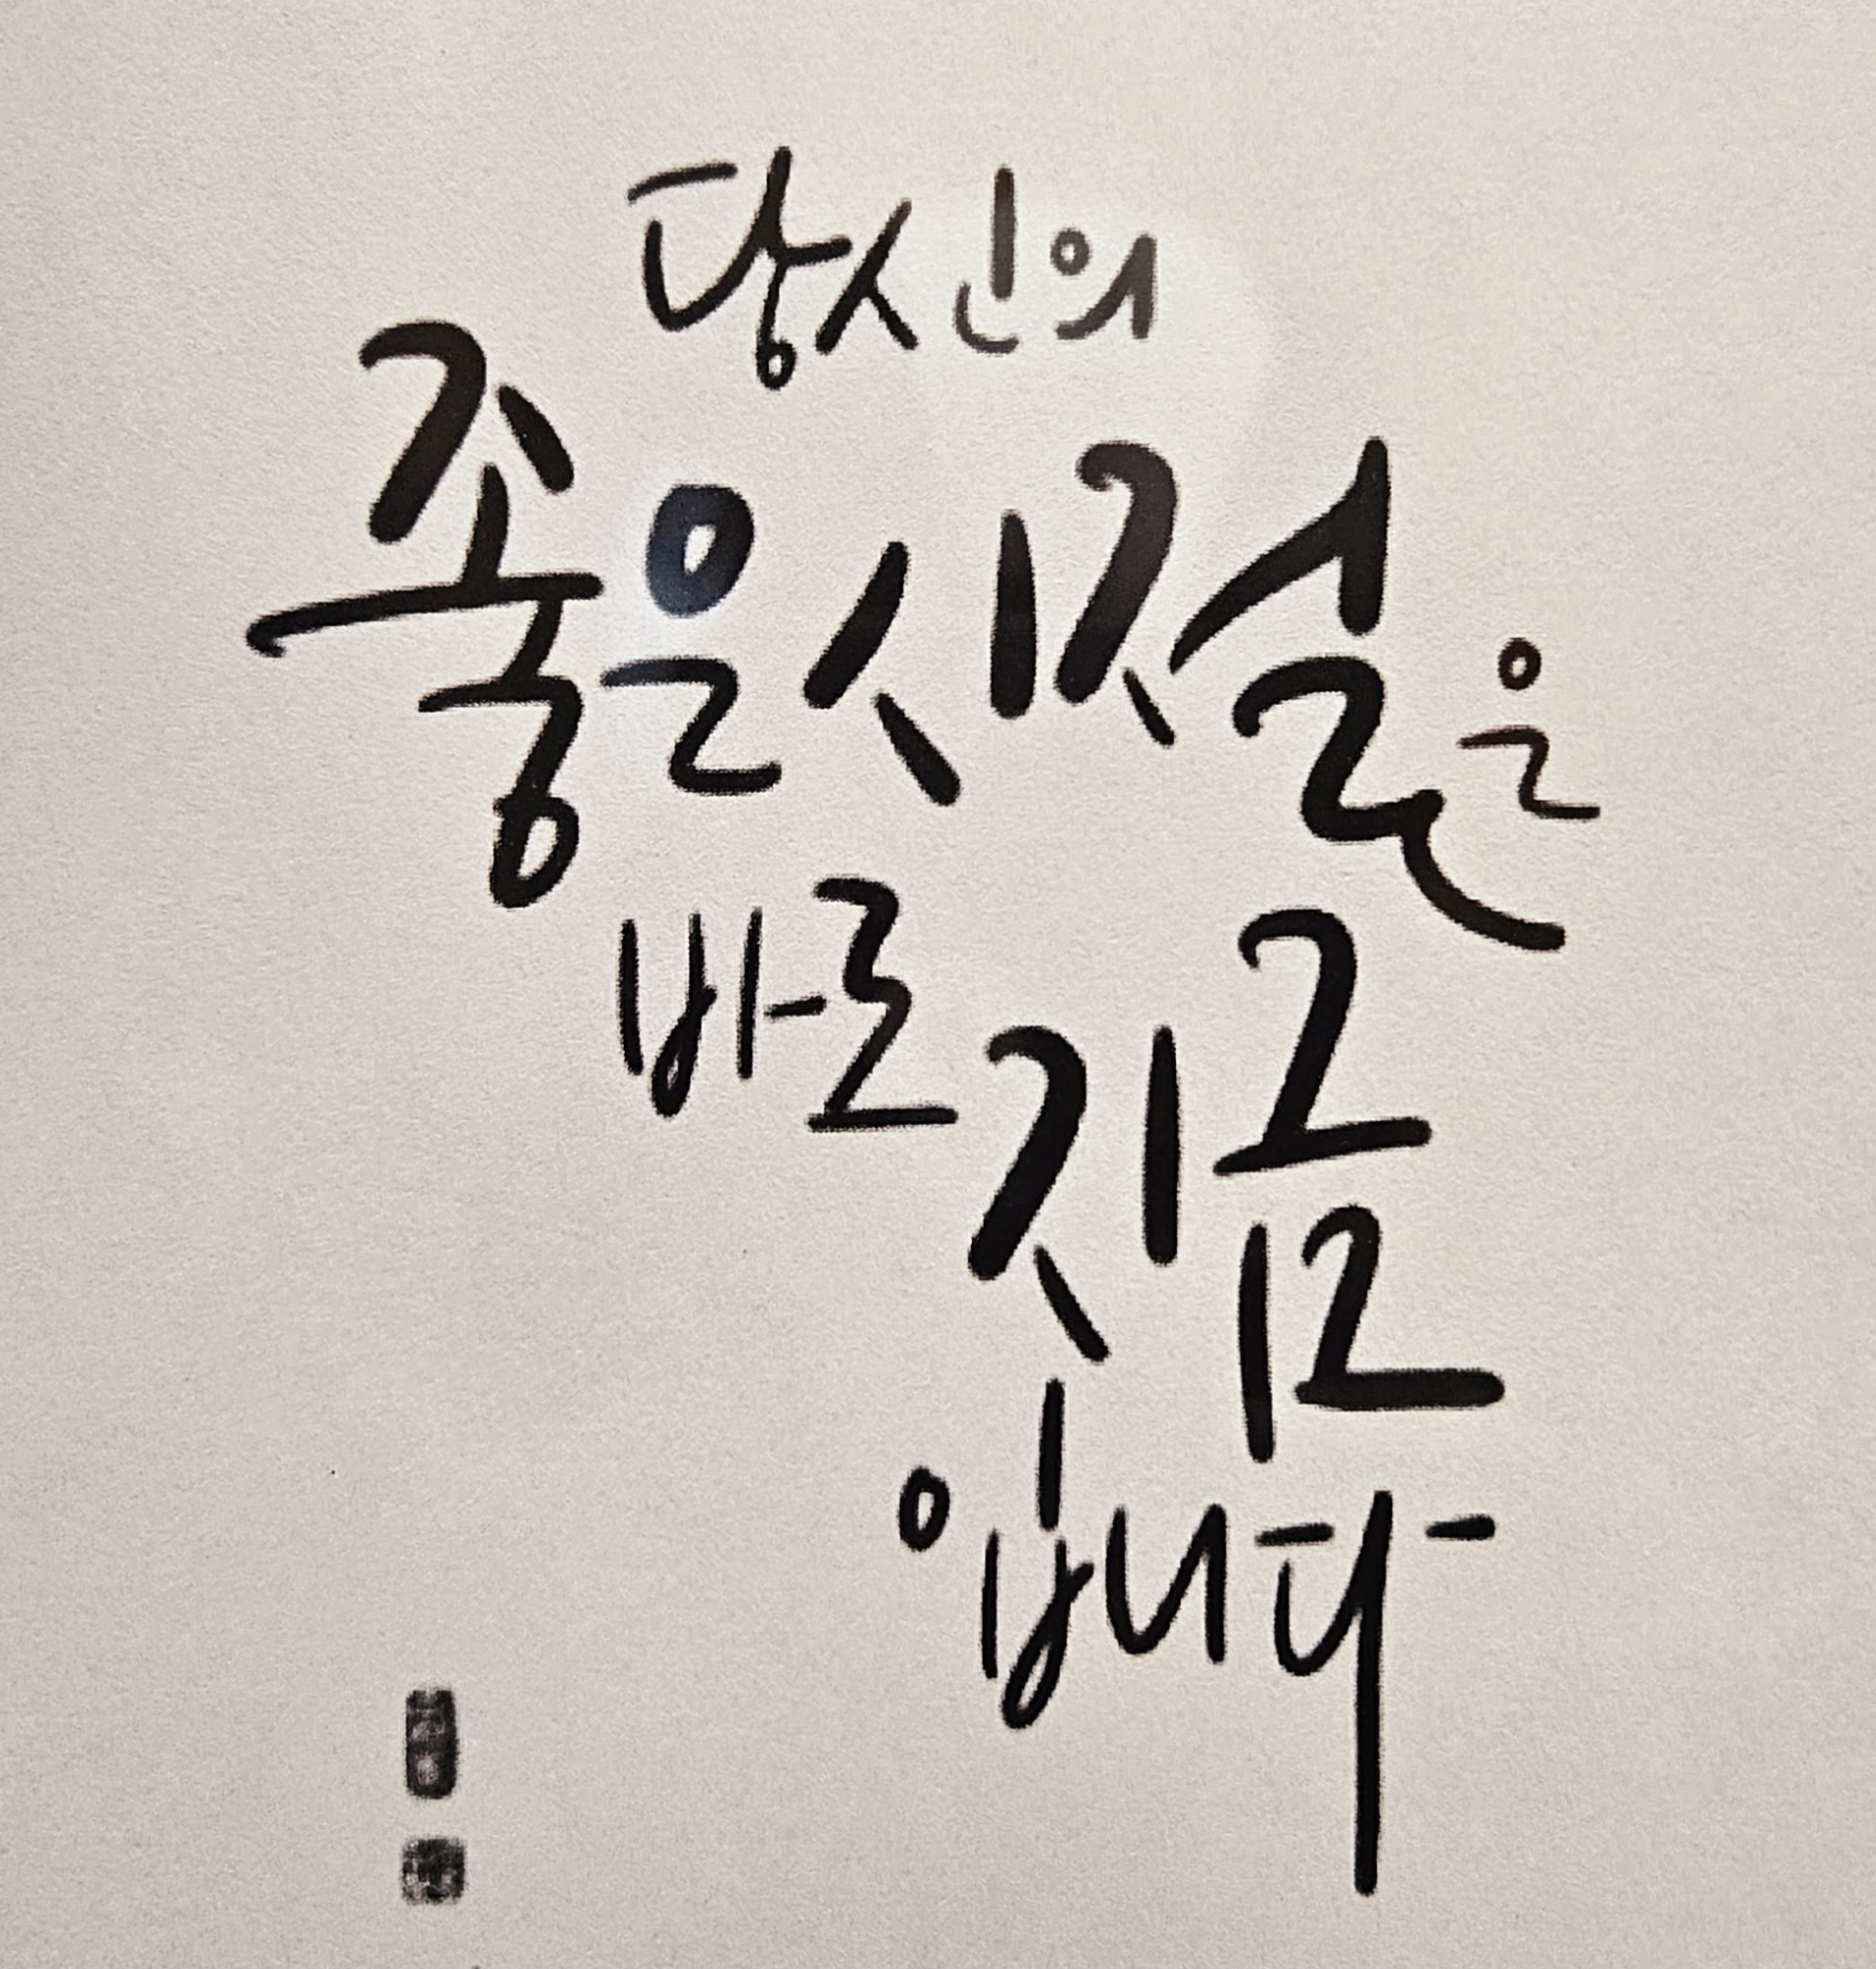 당신의
좋은 시절은
바로 지금
입니다